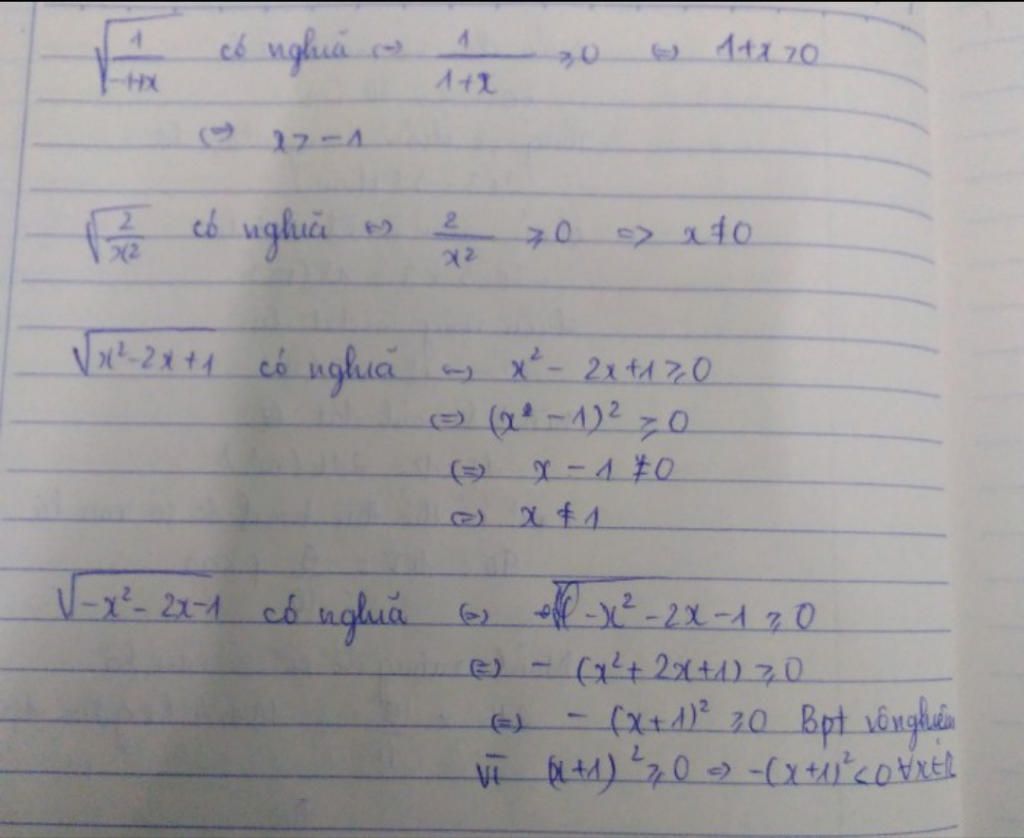 √(1/(-1+x)) có nghĩa ⇔ 1/(1+x) ≥ 0 ⇔ 1+x > 0
⇔ x > -1
√(2/x²) có nghĩa ⇔ 2/x² ≥ 0 => x ≠ 0
√(x²-2x+1) có nghĩa ⇔ x² - 2x+1 ≥ 0
⇔ (x - 1)² ≥ 0
⇔ x - 1 ≠ 0
⇔ x ≠ 1
√(-x²-2x-1) có nghĩa ⇔ -x² - 2x - 1 ≥ 0
⇔ - (x² + 2x+1) ≥ 0
⇔ - (x+1)² ≥ 0 Bpt vô nghiệm
Vì (x+1)² ≥ 0 => -(x+1)² < 0 ∀x∈R